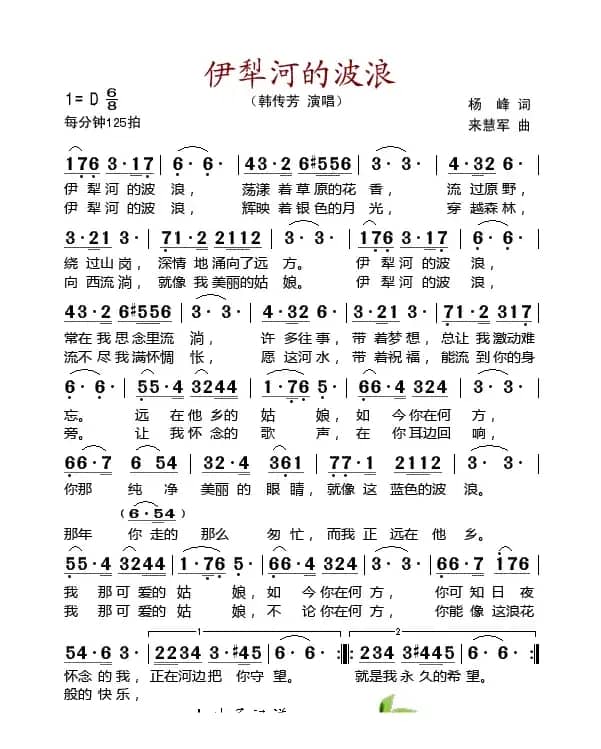 伊犁河的波浪
1= D 6/8
（韩传芳 演唱）
杨 峰 词
每分钟125拍
来慧军 曲
176 3·17 | 6· 6· | 43·2 6#5556 | 3· 3· | 4·32 6· |
伊犁河的波 浪， 荡漾 着草原的花 香， 流 过原野，
伊犁河的波 浪， 辉映 着银色的月 光， 穿 越森林，
3·21 3· | 71·2 2112 | 3· 3· | 176 3·17 | 6· 6· |
绕 过山岗， 深情 地涌向了远 方。 伊犁河的波 浪，
向 西流淌， 就像 我美丽的姑 娘。 伊犁河的波 浪，
43·2 6#5556 | 3· 3· | 4·32 6· | 3·21 3· | 71·2 317 |
常在我思念里流 淌， 许 多往事，带 着梦想，总让我激动难
流不尽我满怀惆 怅， 愿 这河水，带 着祝福，能流到你的身
6· 6· | 55·4 3244 | 1·76 5· | 66·4 324 | 3· 3· |
忘。 远 在他乡的姑 娘，如 今你在何方，
旁。 让 我怀念的歌 声，在 你耳边回响，
66·7 6 54 | 32·4 361 | 77·1 2112 | 3· 3· |
你那 纯净 美丽的眼睛，就像这 蓝色的波浪。
(6·54)
那年 你走的那么 匆忙，而我正 远在他乡。
55·4 3244 | 1·76 5· | 66·4 324 | 3· 3· | 66·7 176 |
我 那可爱的姑 娘，如 今你在何方， 你可知日夜
我 那可爱的姑 娘，不 论你在何方， 你能像这浪花
1 2
54·6 3· | 2234 3·#45 | 6· 6· :| 2234 3#445 | 6· 6· :|
怀念的我，正在河边把 你守望。 就是我永久的希望。
般的快乐，